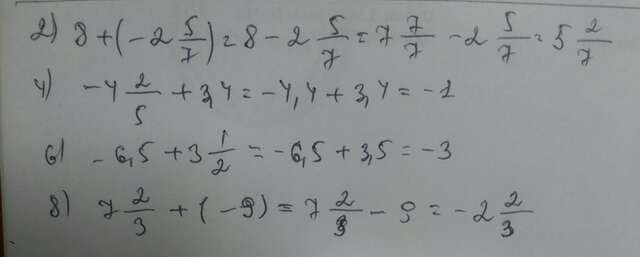 2) 8 + (-2 5/7) = 8 - 2 5/7 = 7 7/7 - 2 5/7 = 5 2/7
4) -4 2/5 + 3,4 = -4,4 + 3,4 = -1
6) -6,5 + 3 1/2 = -6,5 + 3,5 = -3
8) 7 2/3 + (-9) = 7 2/3 - 9 = -2 2/3